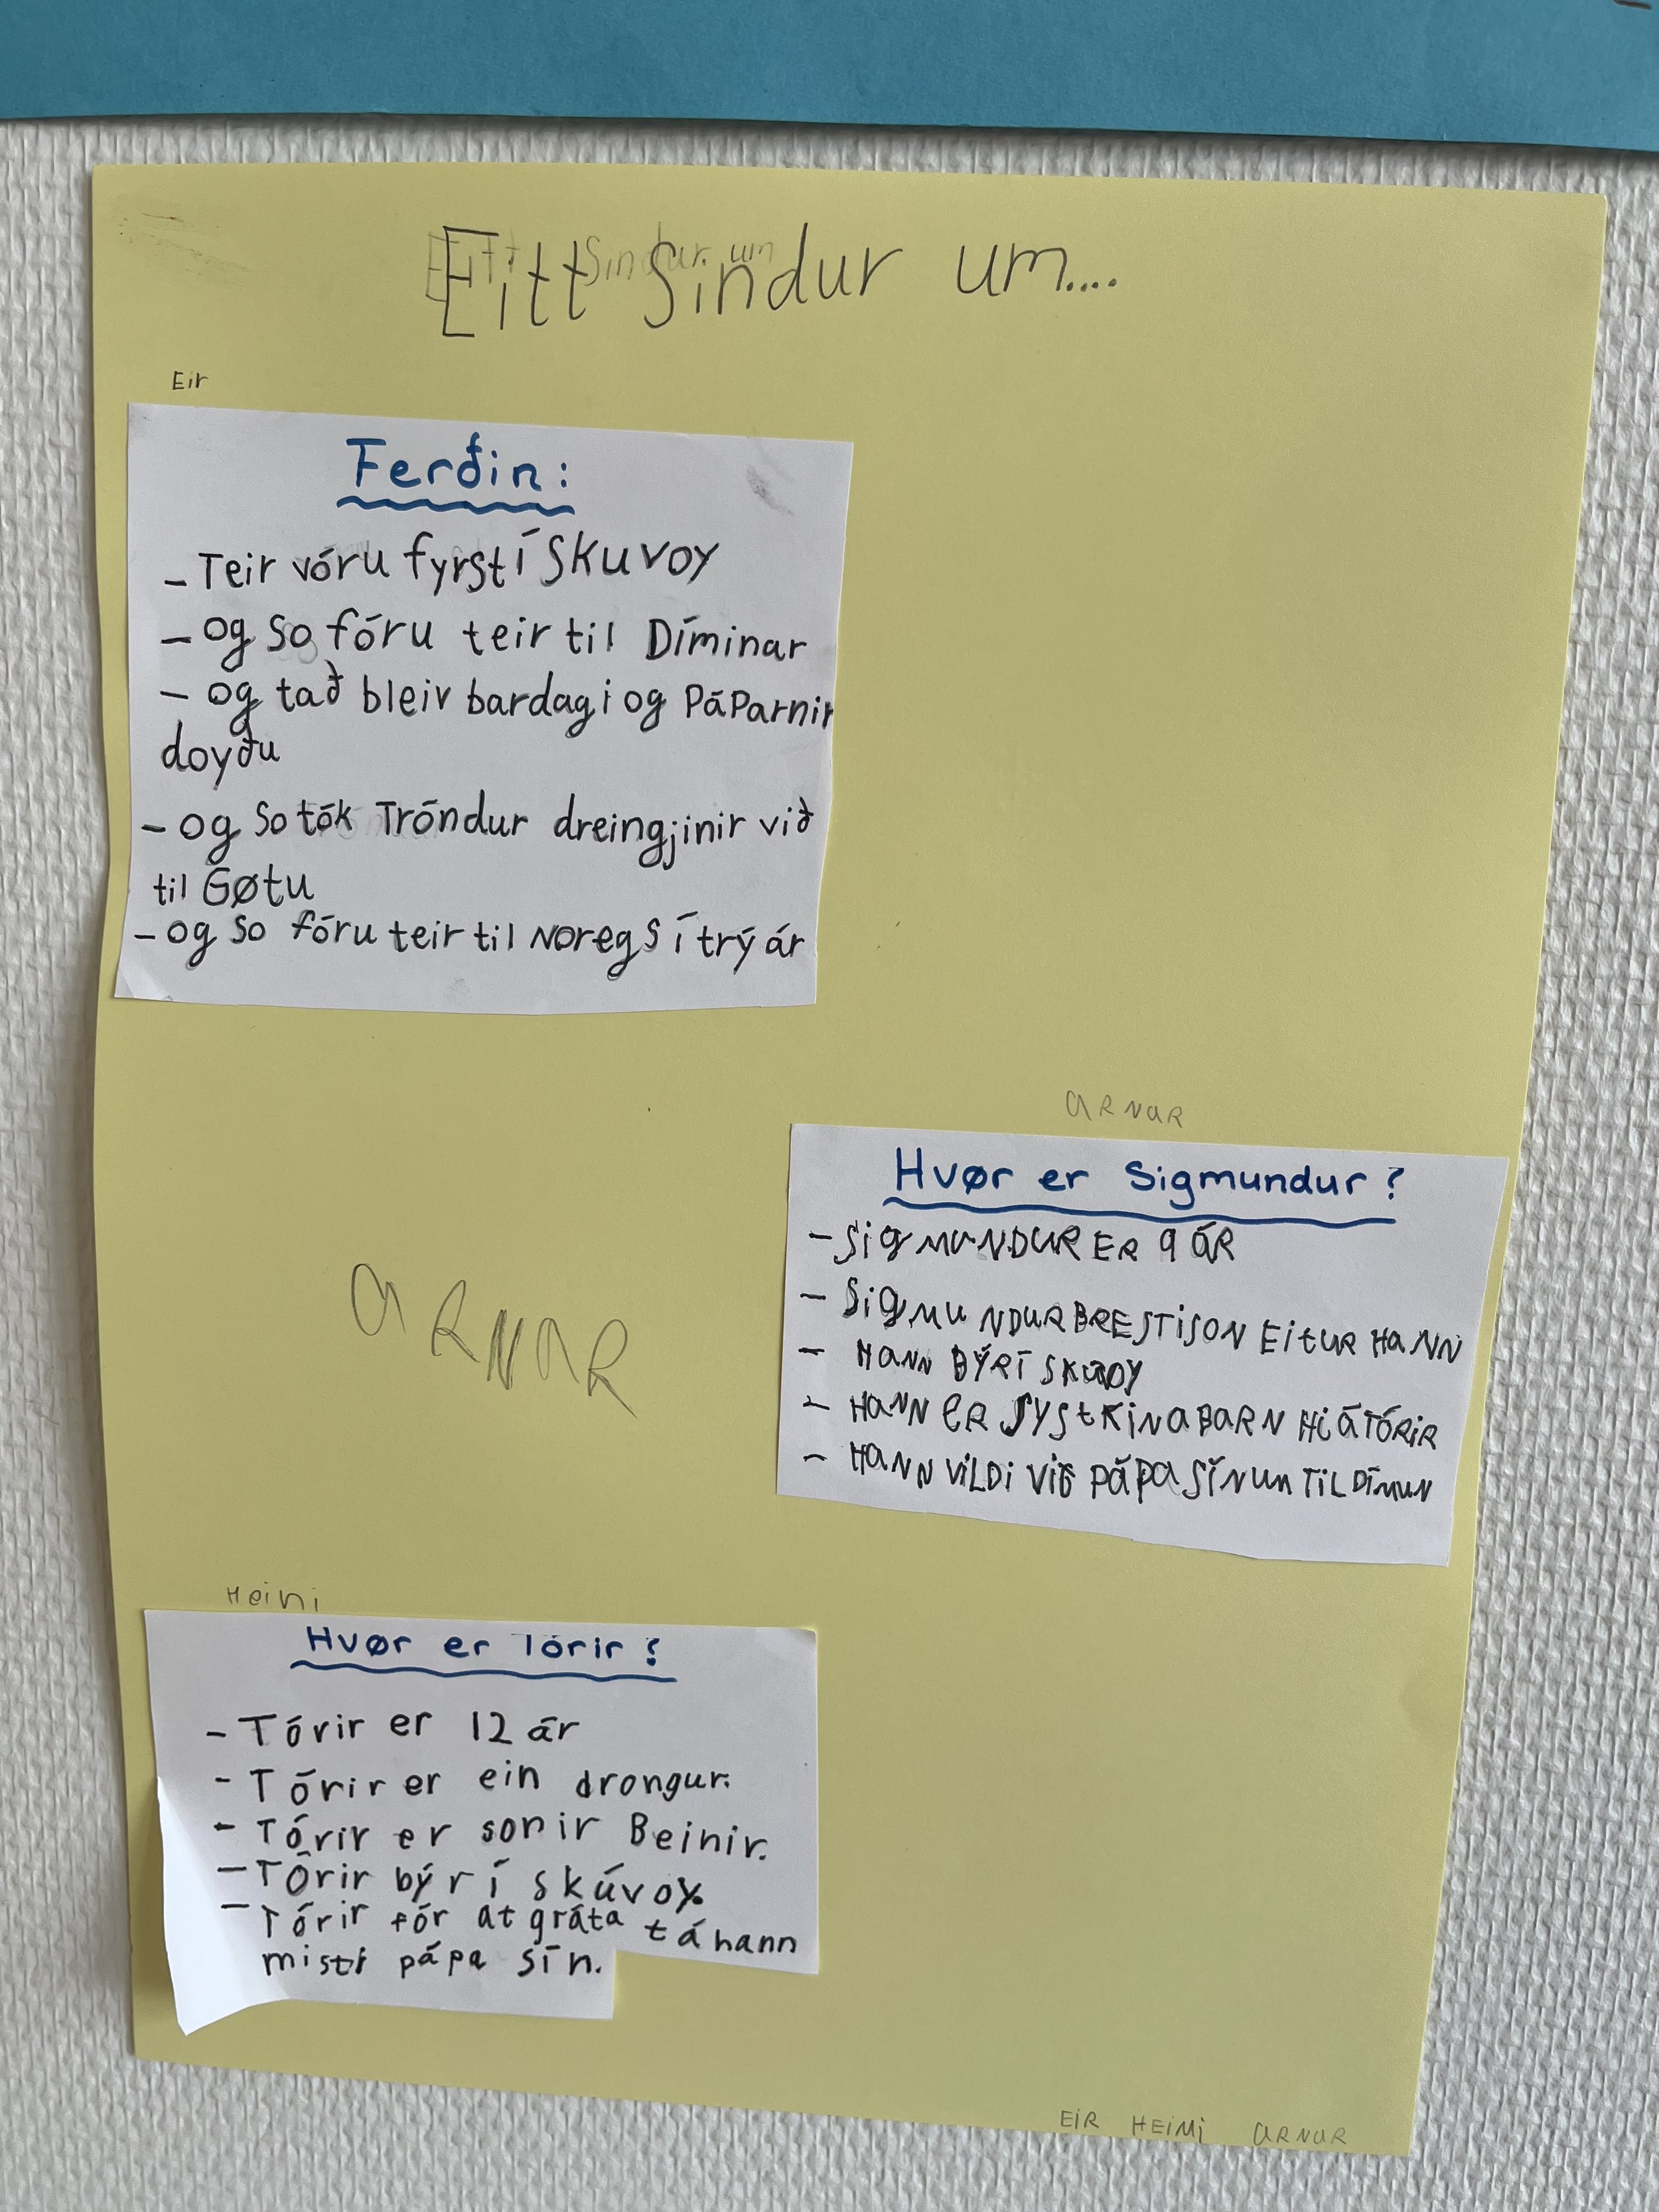 Eitt Sindur um....
Eir
Ferðin:
- Teir vóru fyrst í Skuvoy
- og so fóru teir til Díminar
- og tað bleiv bardagi og Páparnir
doyðu
- og so tók Tróndur dreingjinir við
til Gøtu
- og so fóru teir til Noregs í trý ár
ARNAR
Hvør er Sigmundur?
- SIGMUNDUR ER 9 ÁR
- SIGMUNDUR BRESTISON EITUR HANN
- HANN BÝR Í SKUVOY
- HANN ER SYSTKINABARN HIÁ TÓRIR
- HANN VILDI VIÐ PÁPA SÍNUM TIL DÍMUN
ARNAR
Heini
Hvør er Tórir?
- Tórir er 12 ár
- Tórir er ein drongur.
- Tórir er sonir Beinir.
- Tórir býr í skúvoy.
- Tórir fór at gráta tá hann
misti pápa sín.
EIR HEINI ARNAR